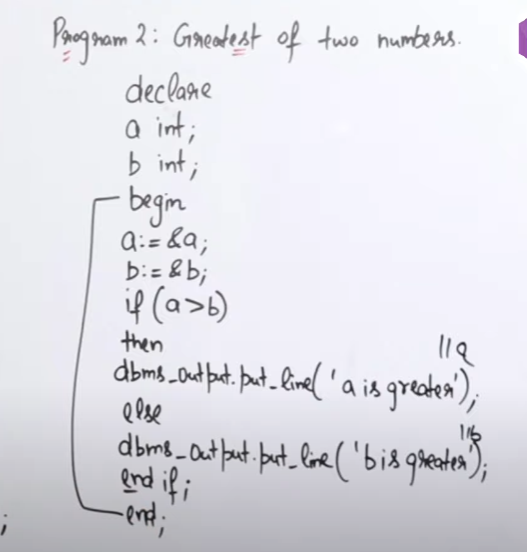 Program 2: Greatest of two numbers.
declare
a int;
b int;
begin
a:= &a;
b:= &b;
if (a>b)
then
dbms_output.put_line('a is greater'||a);
else
dbms_output.put_line('b is greater'||b);
end if;
end;
;